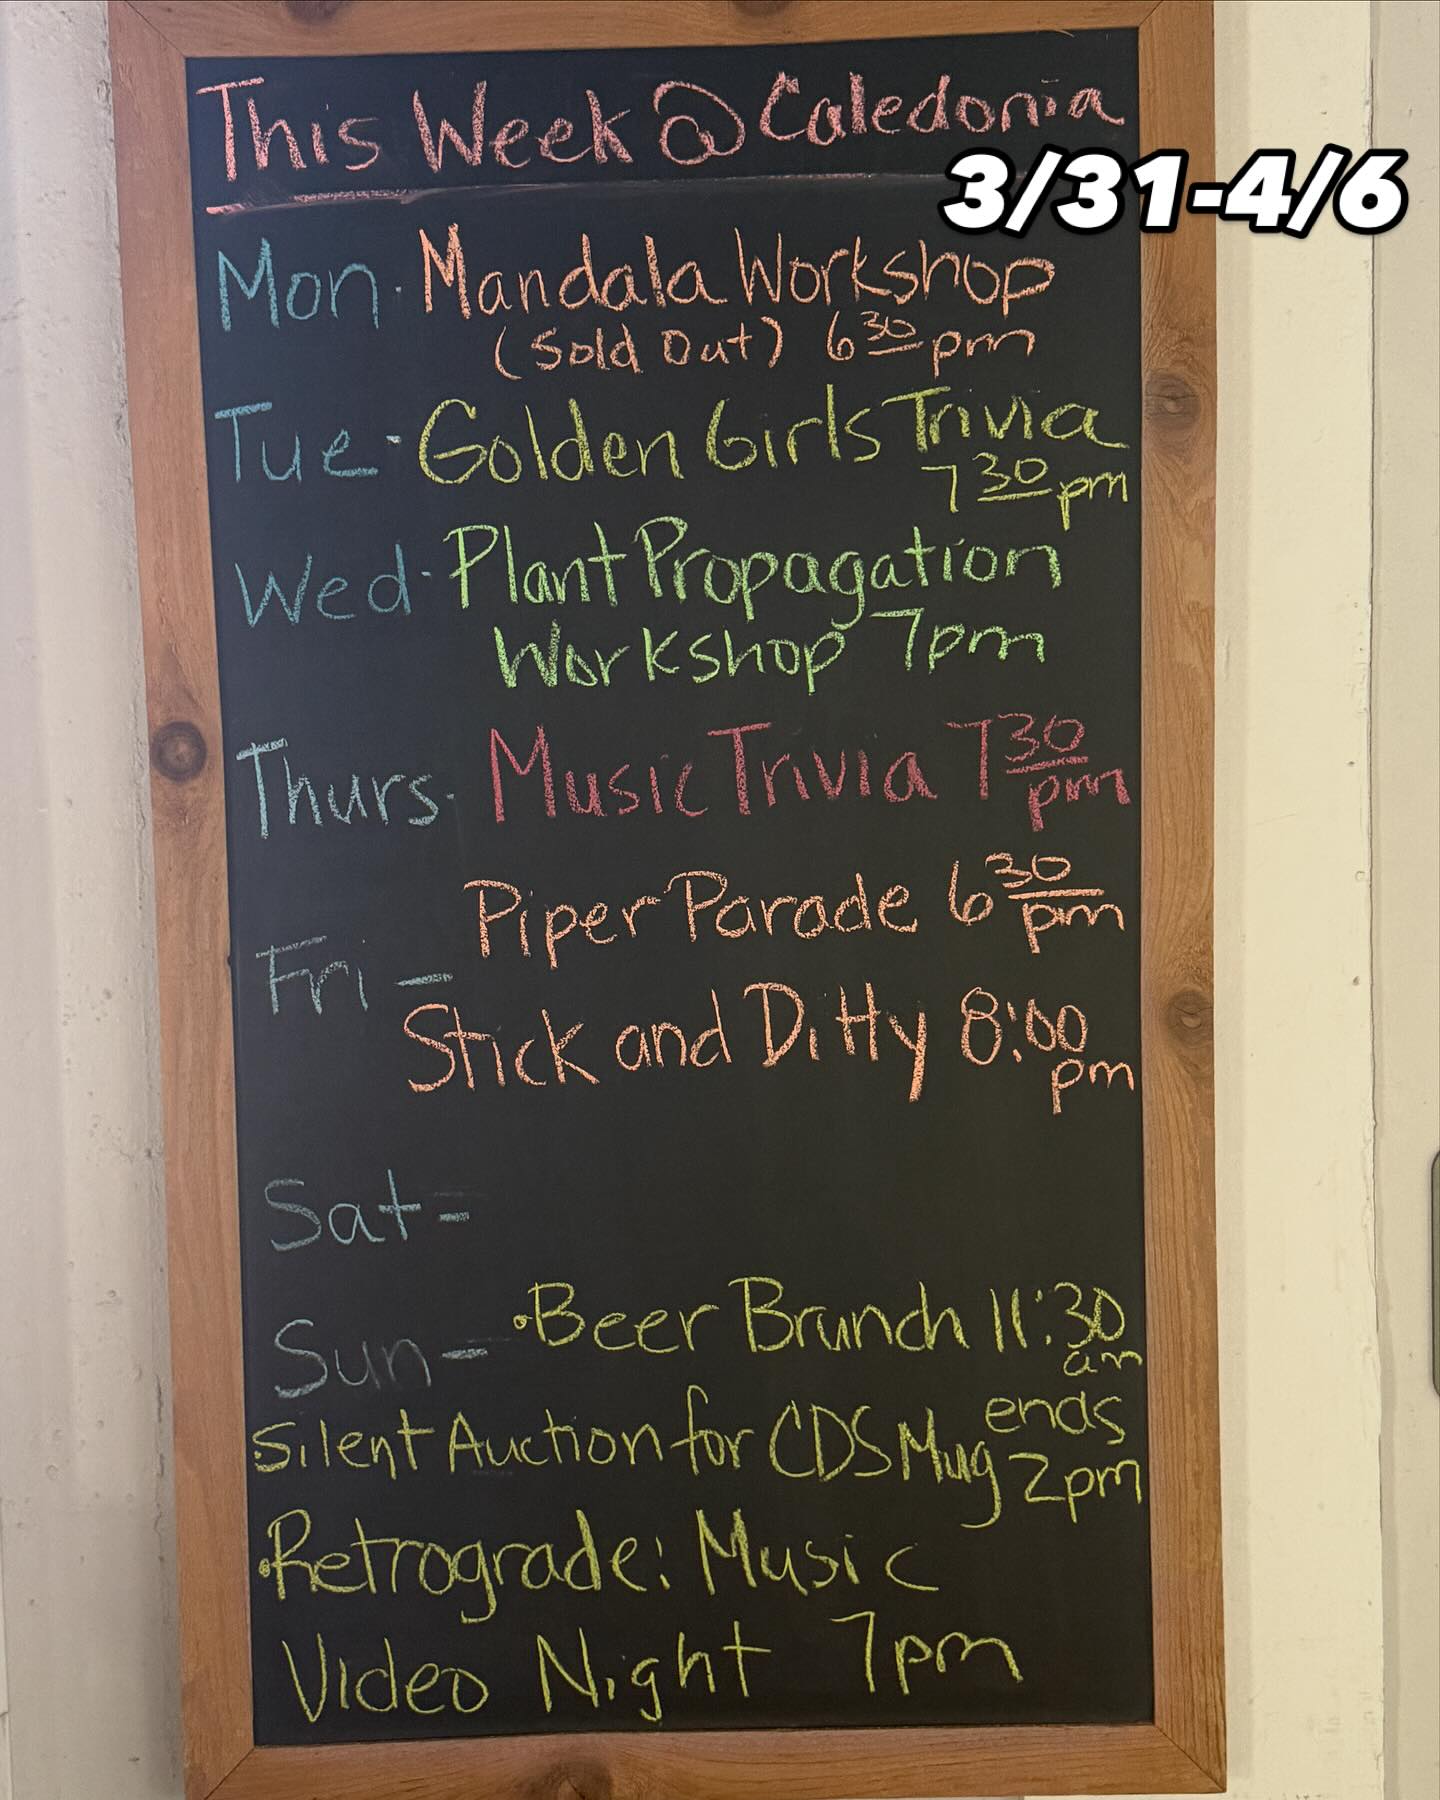 This Week @ Caledonia
3/31-4/6
Mon. Mandala Workshop
(Sold Out) 6 30 pm
Tue - Golden Girls Trivia
7 30 pm
Wed. Plant Propagation
Workshop 7pm
Thurs. Music Trivia 7 30
pm
Piper Parade 6 30
pm
Fri -
Stick and Ditty 8:00
pm
Sat -
Sun - • Beer Brunch 11:30
am
• Silent Auction for CDS Mug ends
2pm
• Retrograde: Music
Video Night 7pm